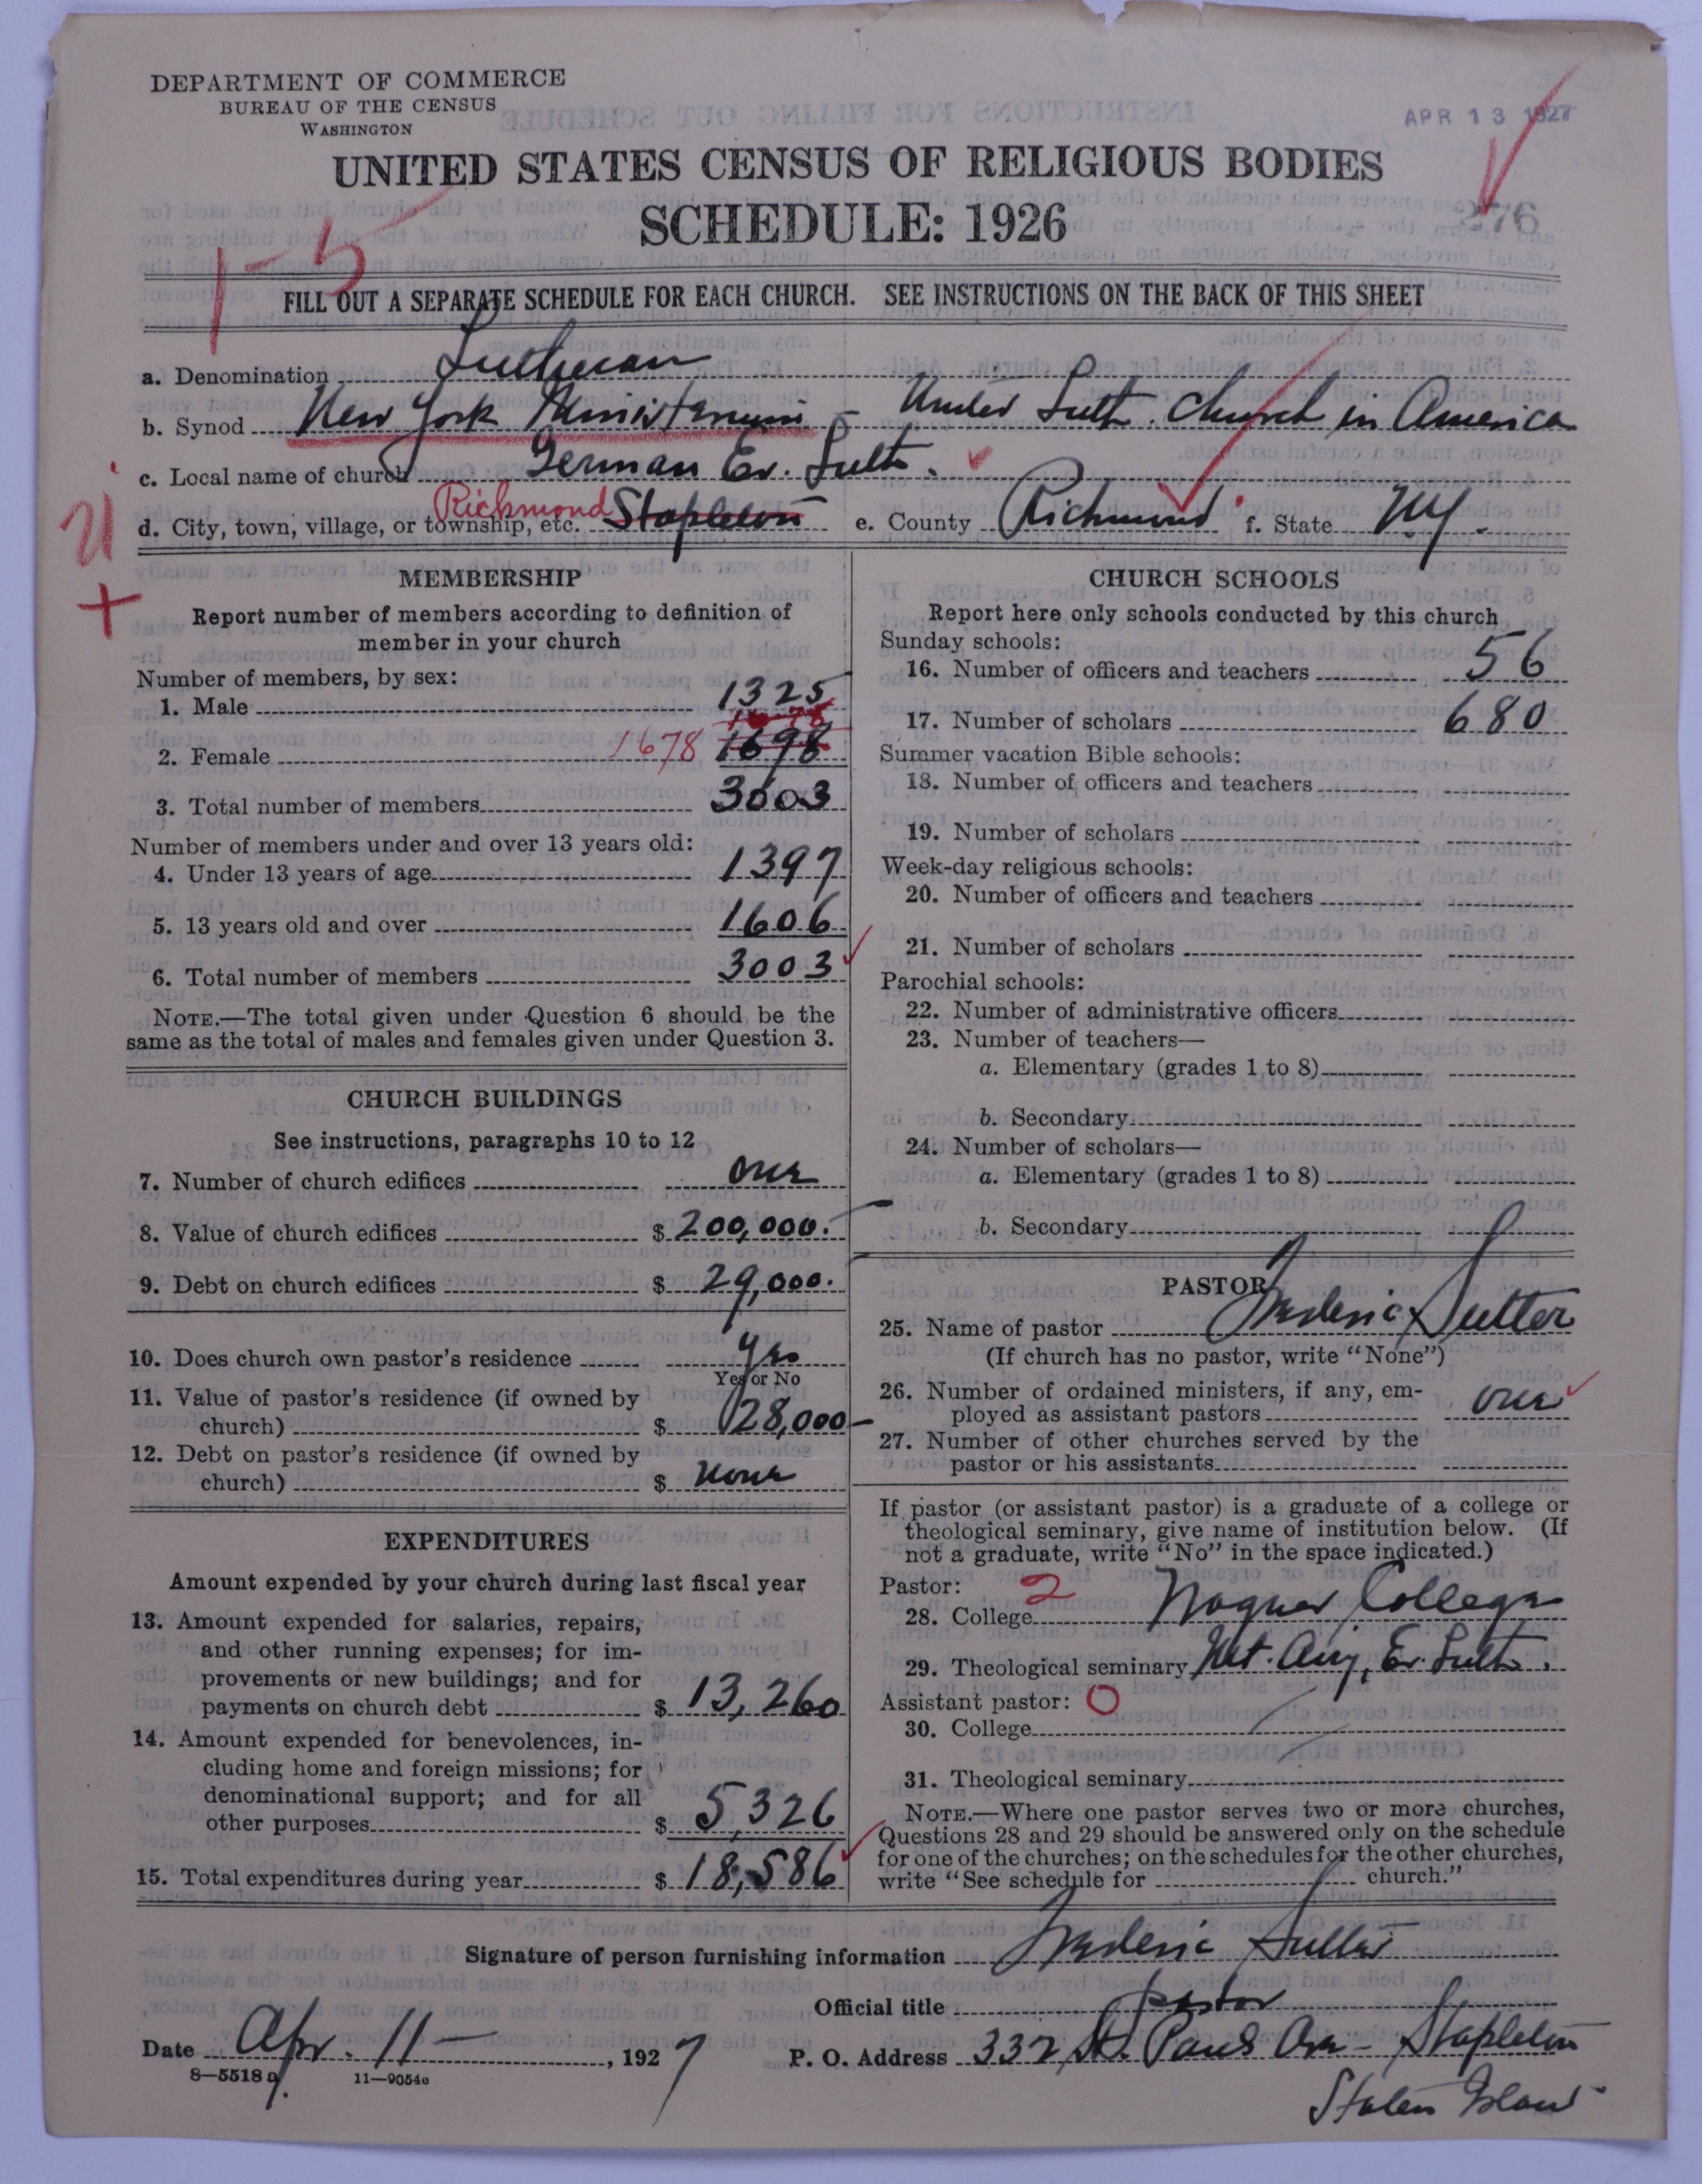 DEPARTMENT OF COMMERCE
BUREAU OF THE CENSUS
WASHINGTON
APR 13 1927
UNITED STATES CENSUS OF RELIGIOUS BODIES
SCHEDULE: 1926
276
1-5
FILL OUT A SEPARATE SCHEDULE FOR EACH CHURCH. SEE INSTRUCTIONS ON THE BACK OF THIS SHEET
a. Denomination Lutheran
b. Synod New York Ministerium - United Luth. Church in America
c. Local name of church German Ev. Luth.
d. City, town, village, or township, etc. Richmond Stapleton e. County Richmond f. State N.Y.
MEMBERSHIP
Report number of members according to definition of
member in your church
Number of members, by sex:
1. Male 1325
1678
2. Female 1678 1698
3. Total number of members 3003
Number of members under and over 13 years old:
4. Under 13 years of age 1397
5. 13 years old and over 1606
6. Total number of members 3003
NOTE.—The total given under Question 6 should be the
same as the total of males and females given under Question 3.
CHURCH BUILDINGS
See instructions, paragraphs 10 to 12
7. Number of church edifices one
8. Value of church edifices $ 200,000.
9. Debt on church edifices $ 29,000.
10. Does church own pastor's residence yes
Yes or No
11. Value of pastor's residence (if owned by
church) $ 28,000-
12. Debt on pastor's residence (if owned by
church) $ none
EXPENDITURES
Amount expended by your church during last fiscal year
13. Amount expended for salaries, repairs,
and other running expenses; for im-
provements or new buildings; and for
payments on church debt $ 13,260
14. Amount expended for benevolences, in-
cluding home and foreign missions; for
denominational support; and for all
other purposes $ 5,326
15. Total expenditures during year $ 18,586
CHURCH SCHOOLS
Report here only schools conducted by this church
Sunday schools:
16. Number of officers and teachers 56
17. Number of scholars 680
Summer vacation Bible schools:
18. Number of officers and teachers
19. Number of scholars
Week-day religious schools:
20. Number of officers and teachers
21. Number of scholars
Parochial schools:
22. Number of administrative officers
23. Number of teachers—
a. Elementary (grades 1 to 8)
b. Secondary
24. Number of scholars—
a. Elementary (grades 1 to 8)
b. Secondary
PASTOR
25. Name of pastor Frederic Sutter
(If church has no pastor, write "None")
26. Number of ordained ministers, if any, em-
ployed as assistant pastors one
27. Number of other churches served by the
pastor or his assistants
If pastor (or assistant pastor) is a graduate of a college or
theological seminary, give name of institution below. (If
not a graduate, write "No" in the space indicated.)
Pastor: 2
28. College Wagner College
29. Theological seminary Mt. Airy, Ev. Luth.
Assistant pastor: 0
30. College
31. Theological seminary
NOTE.—Where one pastor serves two or more churches,
Questions 28 and 29 should be answered only on the schedule
for one of the churches; on the schedules for the other churches,
write "See schedule for church."
Signature of person furnishing information Frederic Sutter
Official title pastor
Date Apr. 11 - , 1927 P. O. Address 332 St. Pauls Ave - Stapleton
Staten Island
8—5518 a 11—9054